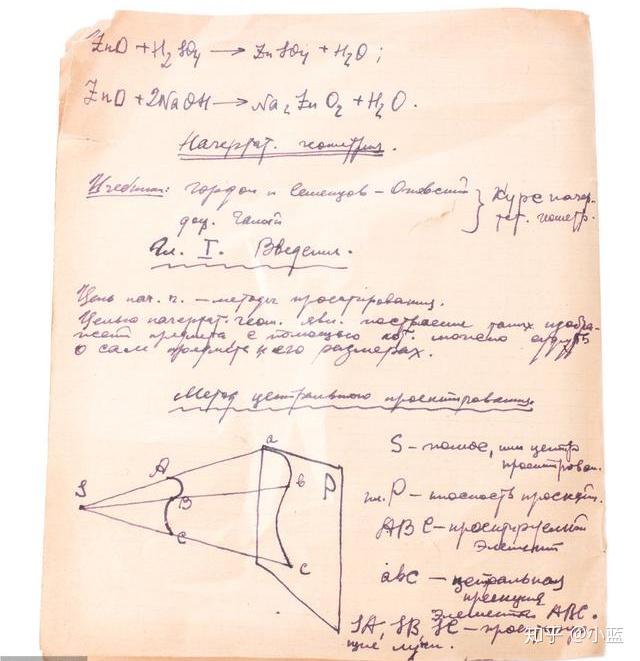 ZnO + H₂SO₄ → ZnSO₄ + H₂O;
ZnO + 2NaOH → Na₂ZnO₂ + H₂O.
Начертат. геометрия.
Учебники: Гордон и Семенцов-Огиевский } Курс начер-
тат. геометр.
доц.
Гл. I. Введение.
Цель нач. г. – методы проектирования.
Целью начертат. геом. явл. построение таких изобра-
жений предмета с помощью кот. можно судить
о сам предмете и его размерах.
Метод центрального проектирования.
S – полюс, или центр
проектирован.
пл. P – плоскость проекций.
ABC – проектируемый
элемент
abc – центральная
проекция
элемента ABC.
SA, SB SC – проектиру-
щие лучи.
S
A
B
C
a
b
c
P
知乎 @小蓝